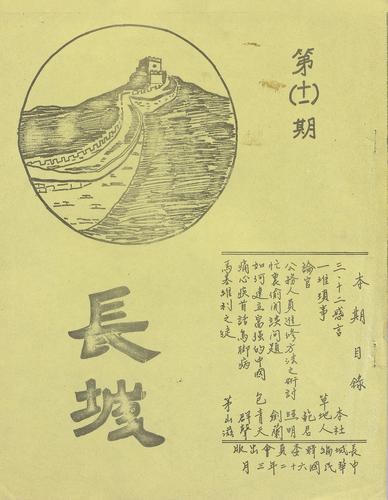 第(十一)期
長城
本期目錄
三‧十二感言 本社
一堆瑣事 草地人
論官 範君
公務人員進修方法之研討 照明
忙裏偷閒談問題 劍蘭
如何建立富强的中國 包青天
痛心疾首話烏脚病 群聲
馬基維利之徒 茅山
長城編輯委員會出版
中華民國六十二年三月